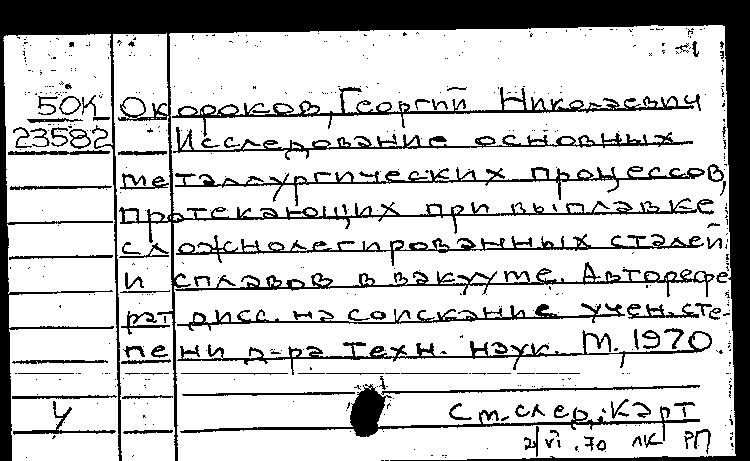 50К Окороков, Георгий Николаевич
23582 Исследование основных
металлургических процессов,
протекающих при выплавке
сложнолегированных сталей
и сплавов в вакууме. Авторефе
рат дисс. на соискание учен. сте-
пени д-ра техн. наук. М., 1970.
У См. след. карт
2/VI.70 ЛК РП